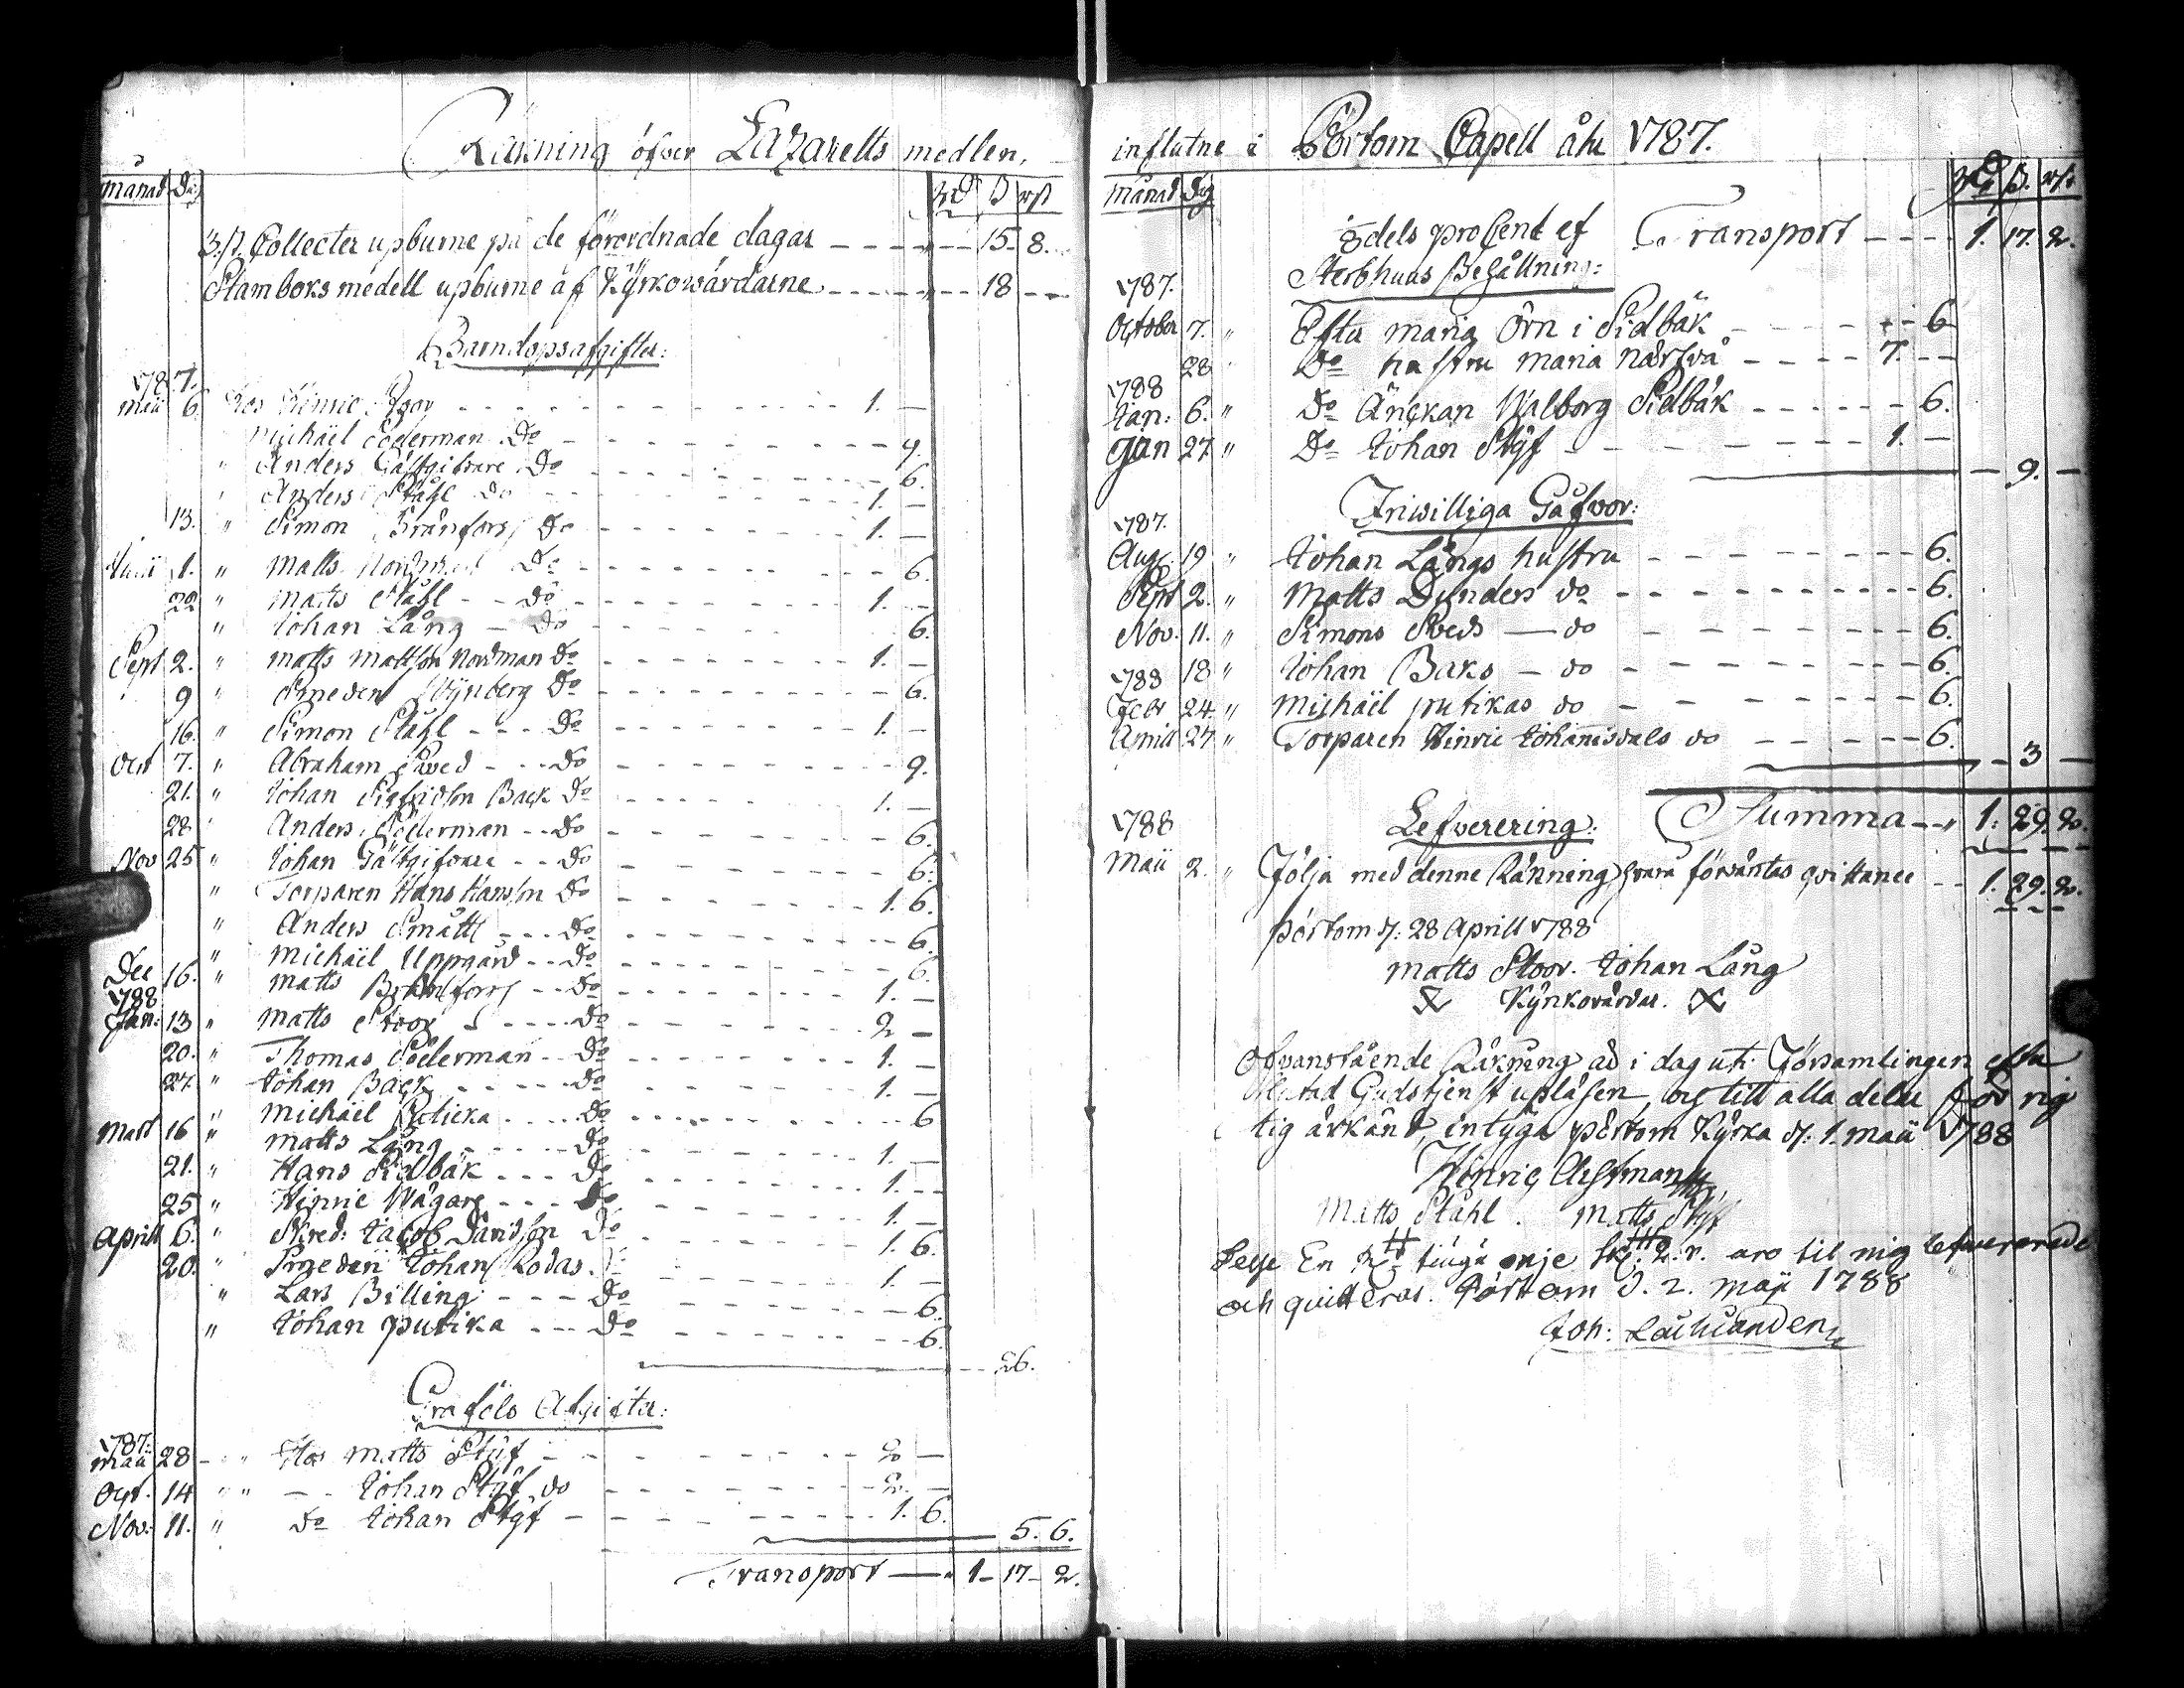 Räkning öfver Lazaretts medlen,
månad Dag Rd ß rst
3. st. Collecter upburne på de förordnade dagar - - - 15 8.
Stamboks medell upburne af Kyrkowärdarne - - - 18 -
Barndopsafgifter:
1787.
maii 6. Hos Hinric Stoor - - - 1. -
Michäel Söderman Do - - - 9.
" Anders Gästgifvare Do - - - 6.
" Anders Ståhl Do - - - 1. -
13. " Simon Bränfors Do - - - 1. -
1. " Matts Nordman Do - - - 6.
22 " Matts Ståhl - - Do - - - 1. -
" Johan Lång - Do - - - 6.
Sept 2. " Matts Mattson Nordman Do - - - 1. -
9 " Smeden Wynberg Do - - - 6.
16. " Simon Ståhl - - - Do - - - 1. -
Oct 7. " Abraham Swed - - - Do - - - 9.
21. " Johan Sigfridson Back Do - - - 1. -
28 " Anders Söderman - - Do - - - 6.
Nov 25 " Johan Gästgifvare - - Do - - - 6.
" Torparen Hans Hansson Do - - - 1. 6.
" Anders Smått - - - Do - - - 6.
" Michäel Uppgård - - Do - - - 6.
Dec 16. " Matts Bränfors - - Do - - - 1. -
1788
Jan: 13 " Matts Stoor - - - Do - - - 2 -
20. " Thomas Söderman - - Do - - - 1. -
27. " Johan Back - - - Do - - - 1. -
" Michäel Puticka - - - Do - - - 6
Mart 16 " Matts Lång - - - Do - - - 1. -
21. " Hans Sidbäk - - - Do - - - 1. -
25 " Hinric Wägars - - - Do - - - 1. -
Aprill 6. " Skred: Jacob Davidson Do - - - 1. 6.
20. " Smeden Johan Rodas. Do - - - 1. -
" Lars Billing - - - Do - - - 6.
" Johan Putika - - - Do - - - 6.
26.
Graföls Afgifter:
1787.
Maii 28 - " Hos Matts Styf - - - 2 -
Oct. 14 " " - - Johan Styf do - - - 2. -
Nov: 11. " Do Johan Styf - - - 1. 6.
5. 6.
Transport - - 1 - 17 - 2.
influtne i Pörtom Capell åhr 1787.
månad Dag Rd ß. rst
1/8 dels procent ef Transport - - - 1. 17. 2.
Sterbhuus Behållning:
1787.
October 7. " Efter Maria Örn i Sidbäk - - - 6
28 " Do hustru Maria Närfvä - - - 7. -
1788
Jan: 6. " Do Änckan Walborg Sidbäk - - - 6.
Jan 27. " Do Johan Styf - - - 1. -
- 9. -
Friwilliga Gåfvor:
1787.
Aug. 19 " Johan Långs hustru - - - 6.
Sept 2. " Matts Dunders do - - - 6.
Nov. 11. " Simons Sveds - do - - - 6.
18 " Johan Baks - do - - - 6.
1788
Febr 24. " Michäel Putikas do - - - 6.
27 " Torparen Hinric Johannisdals do - - - 6.
- 3 -
Lefverering: Summa - - 1. 29. 2.
1788
Maii 2. " Följa med denne Räkning hvara förväntas qvittance - - 1. 29. 2.
Pörtom d: 28 Aprill 1788
Matts Stoor. Johan Lång
Kyrkovärdar.
Ofvanstående Räkning är i dag uti Församlingen efter
slutad Gudstjenst uplåsen, och till alla delar för rig
tig ärkänd, intyga Pörtom Kyrka d: 1. Maii 1788
Hinric Aestman
Matts Ståhl. Matts Styf
Desse En Rd tiugu nije sk: 2. r. äro til mig lefvererade
och quitteras. Pörtom d. 2. Maji 1788
Joh: